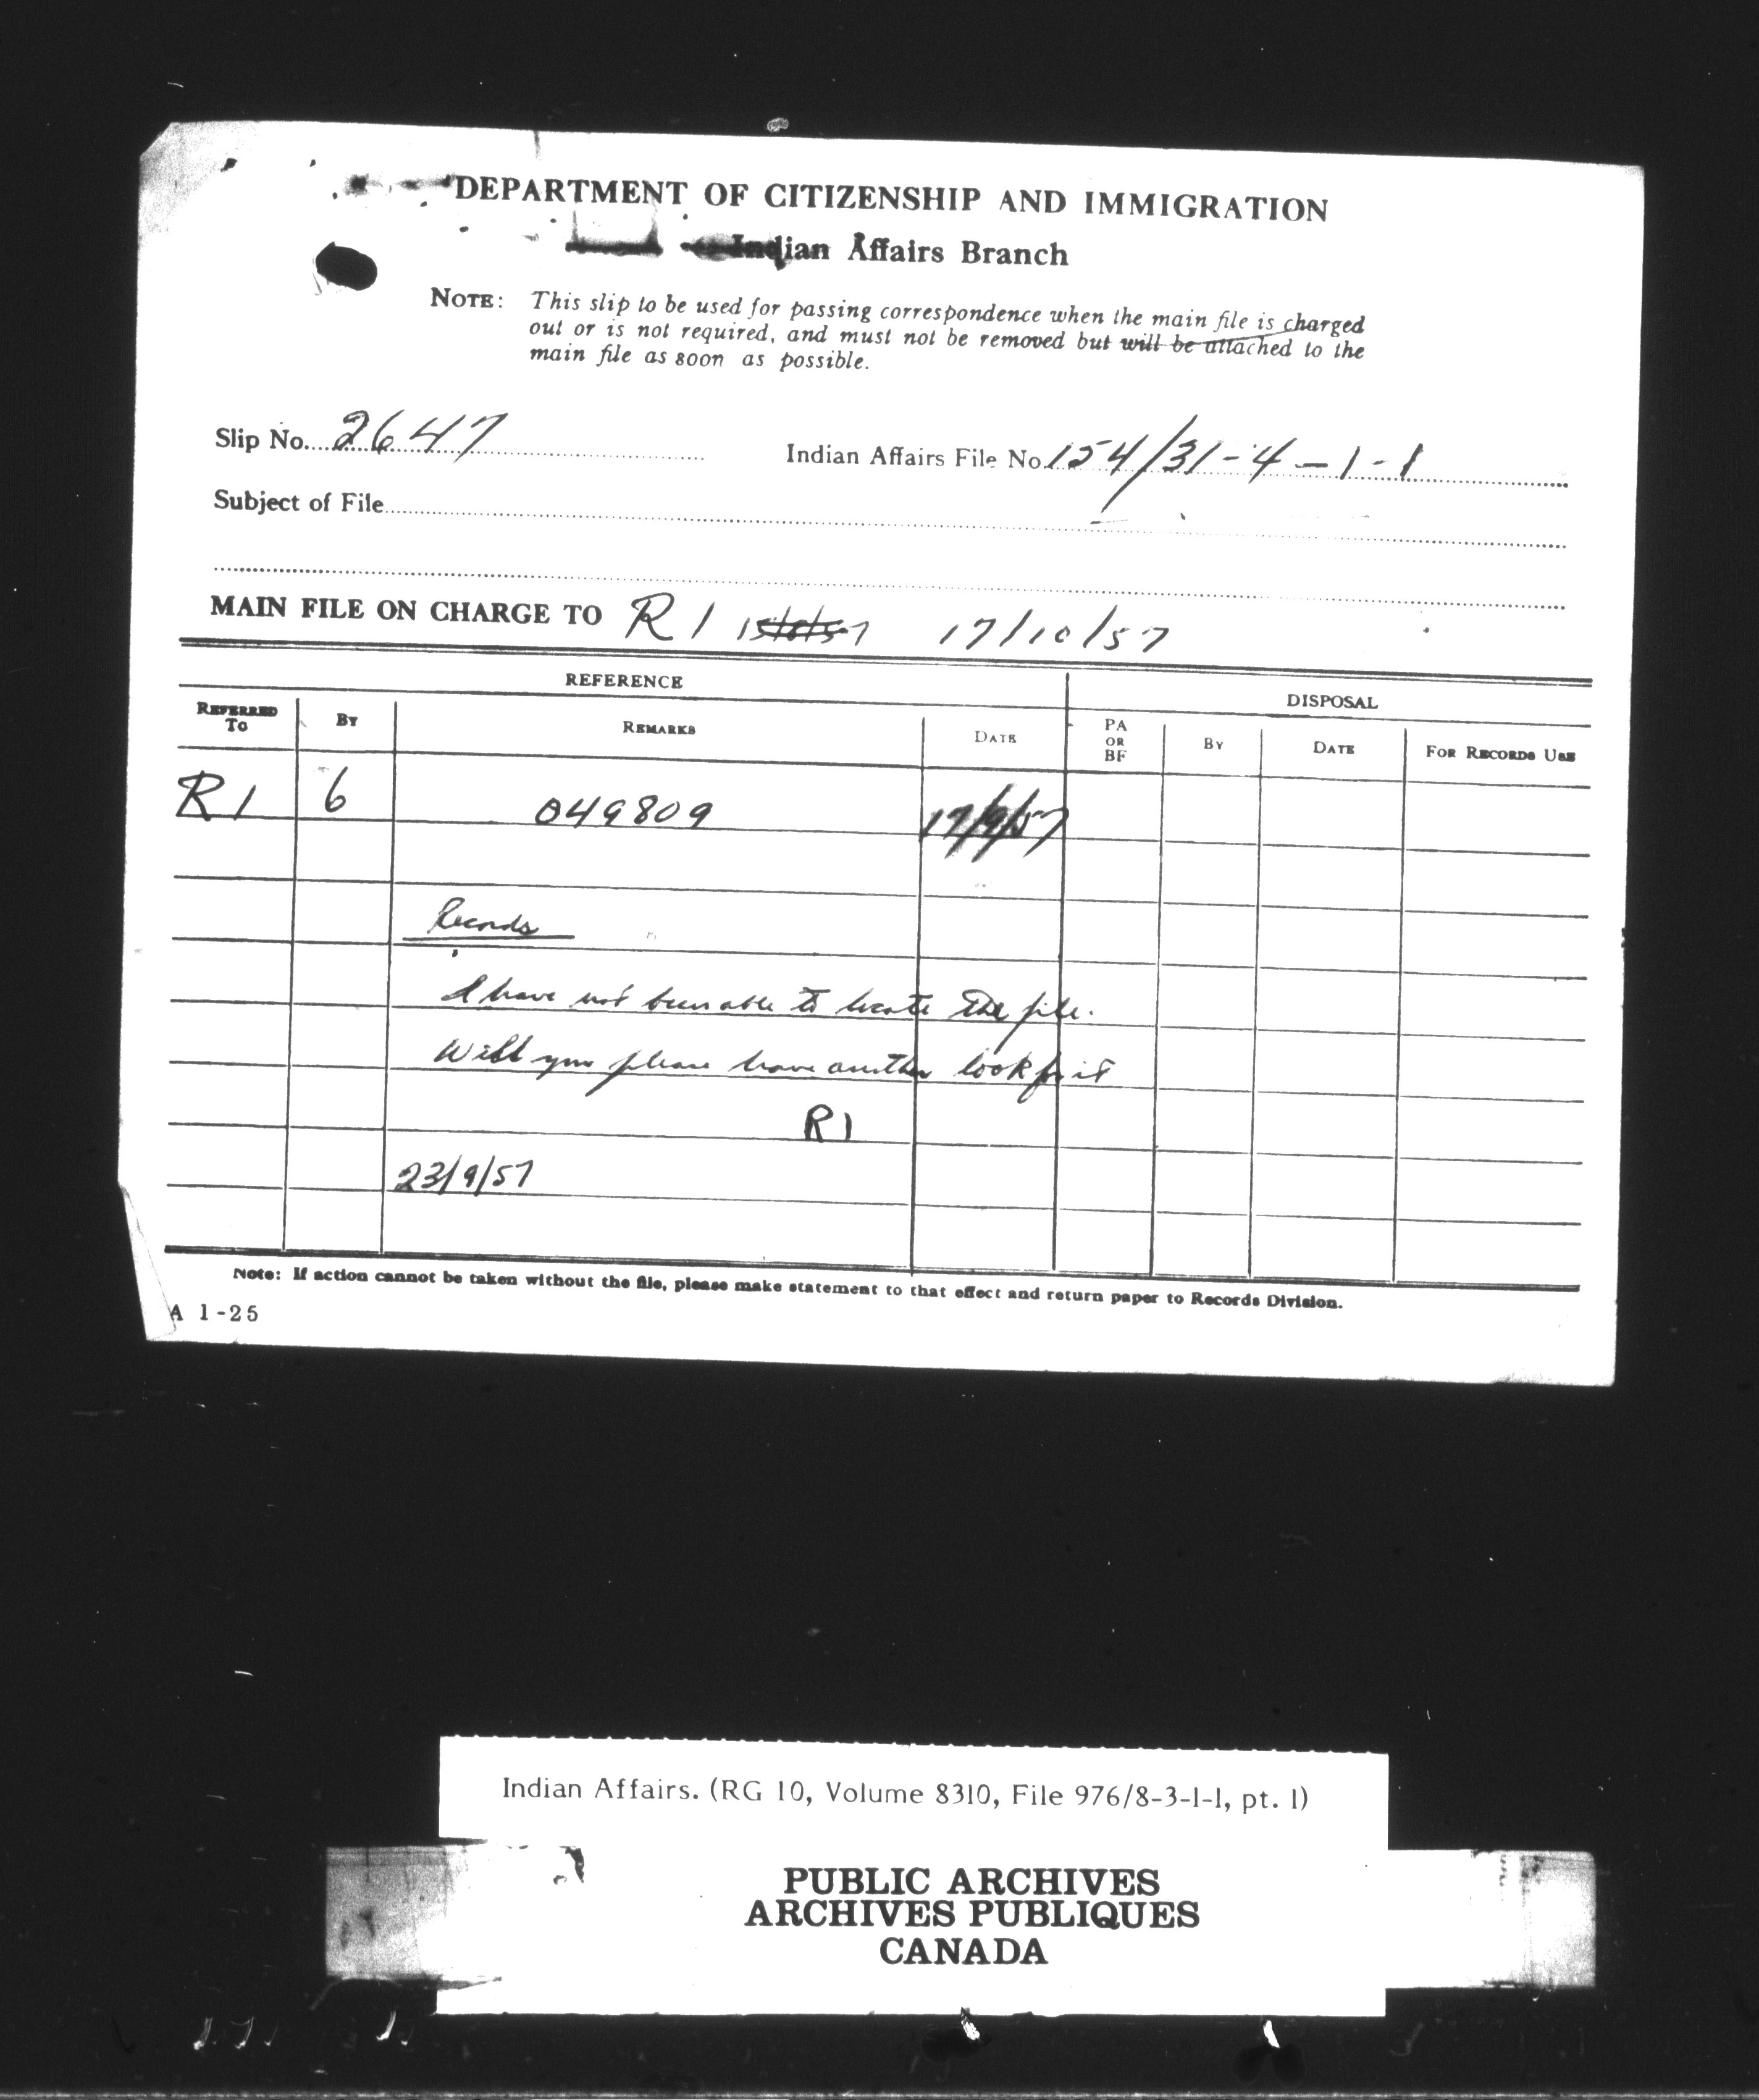 DEPARTMENT OF CITIZENSHIP AND IMMIGRATION
Indian Affairs Branch
NOTE: This slip to be used for passing correspondence when the main file is charged
out or is not required, and must not be removed but will be attached to the
main file as soon as possible.
Slip No. 2647 Indian Affairs File No. 154/31-4-1-1
Subject of File
MAIN FILE ON CHARGE TO R1 17/10/57
REFERENCE DISPOSAL
REFERRED TO BY REMARKS DATE PA OR BF BY DATE FOR RECORDS USE
R1 6 049809 17/9/57
Records
I have not been able to locate the file.
Will you please have another look for it
R1
23/9/57
Note: If action cannot be taken without the file, please make statement to that effect and return paper to Records Division.
A 1-25
Indian Affairs. (RG 10, Volume 8310, File 976/8-3-1-1, pt. 1)
PUBLIC ARCHIVES
ARCHIVES PUBLIQUES
CANADA